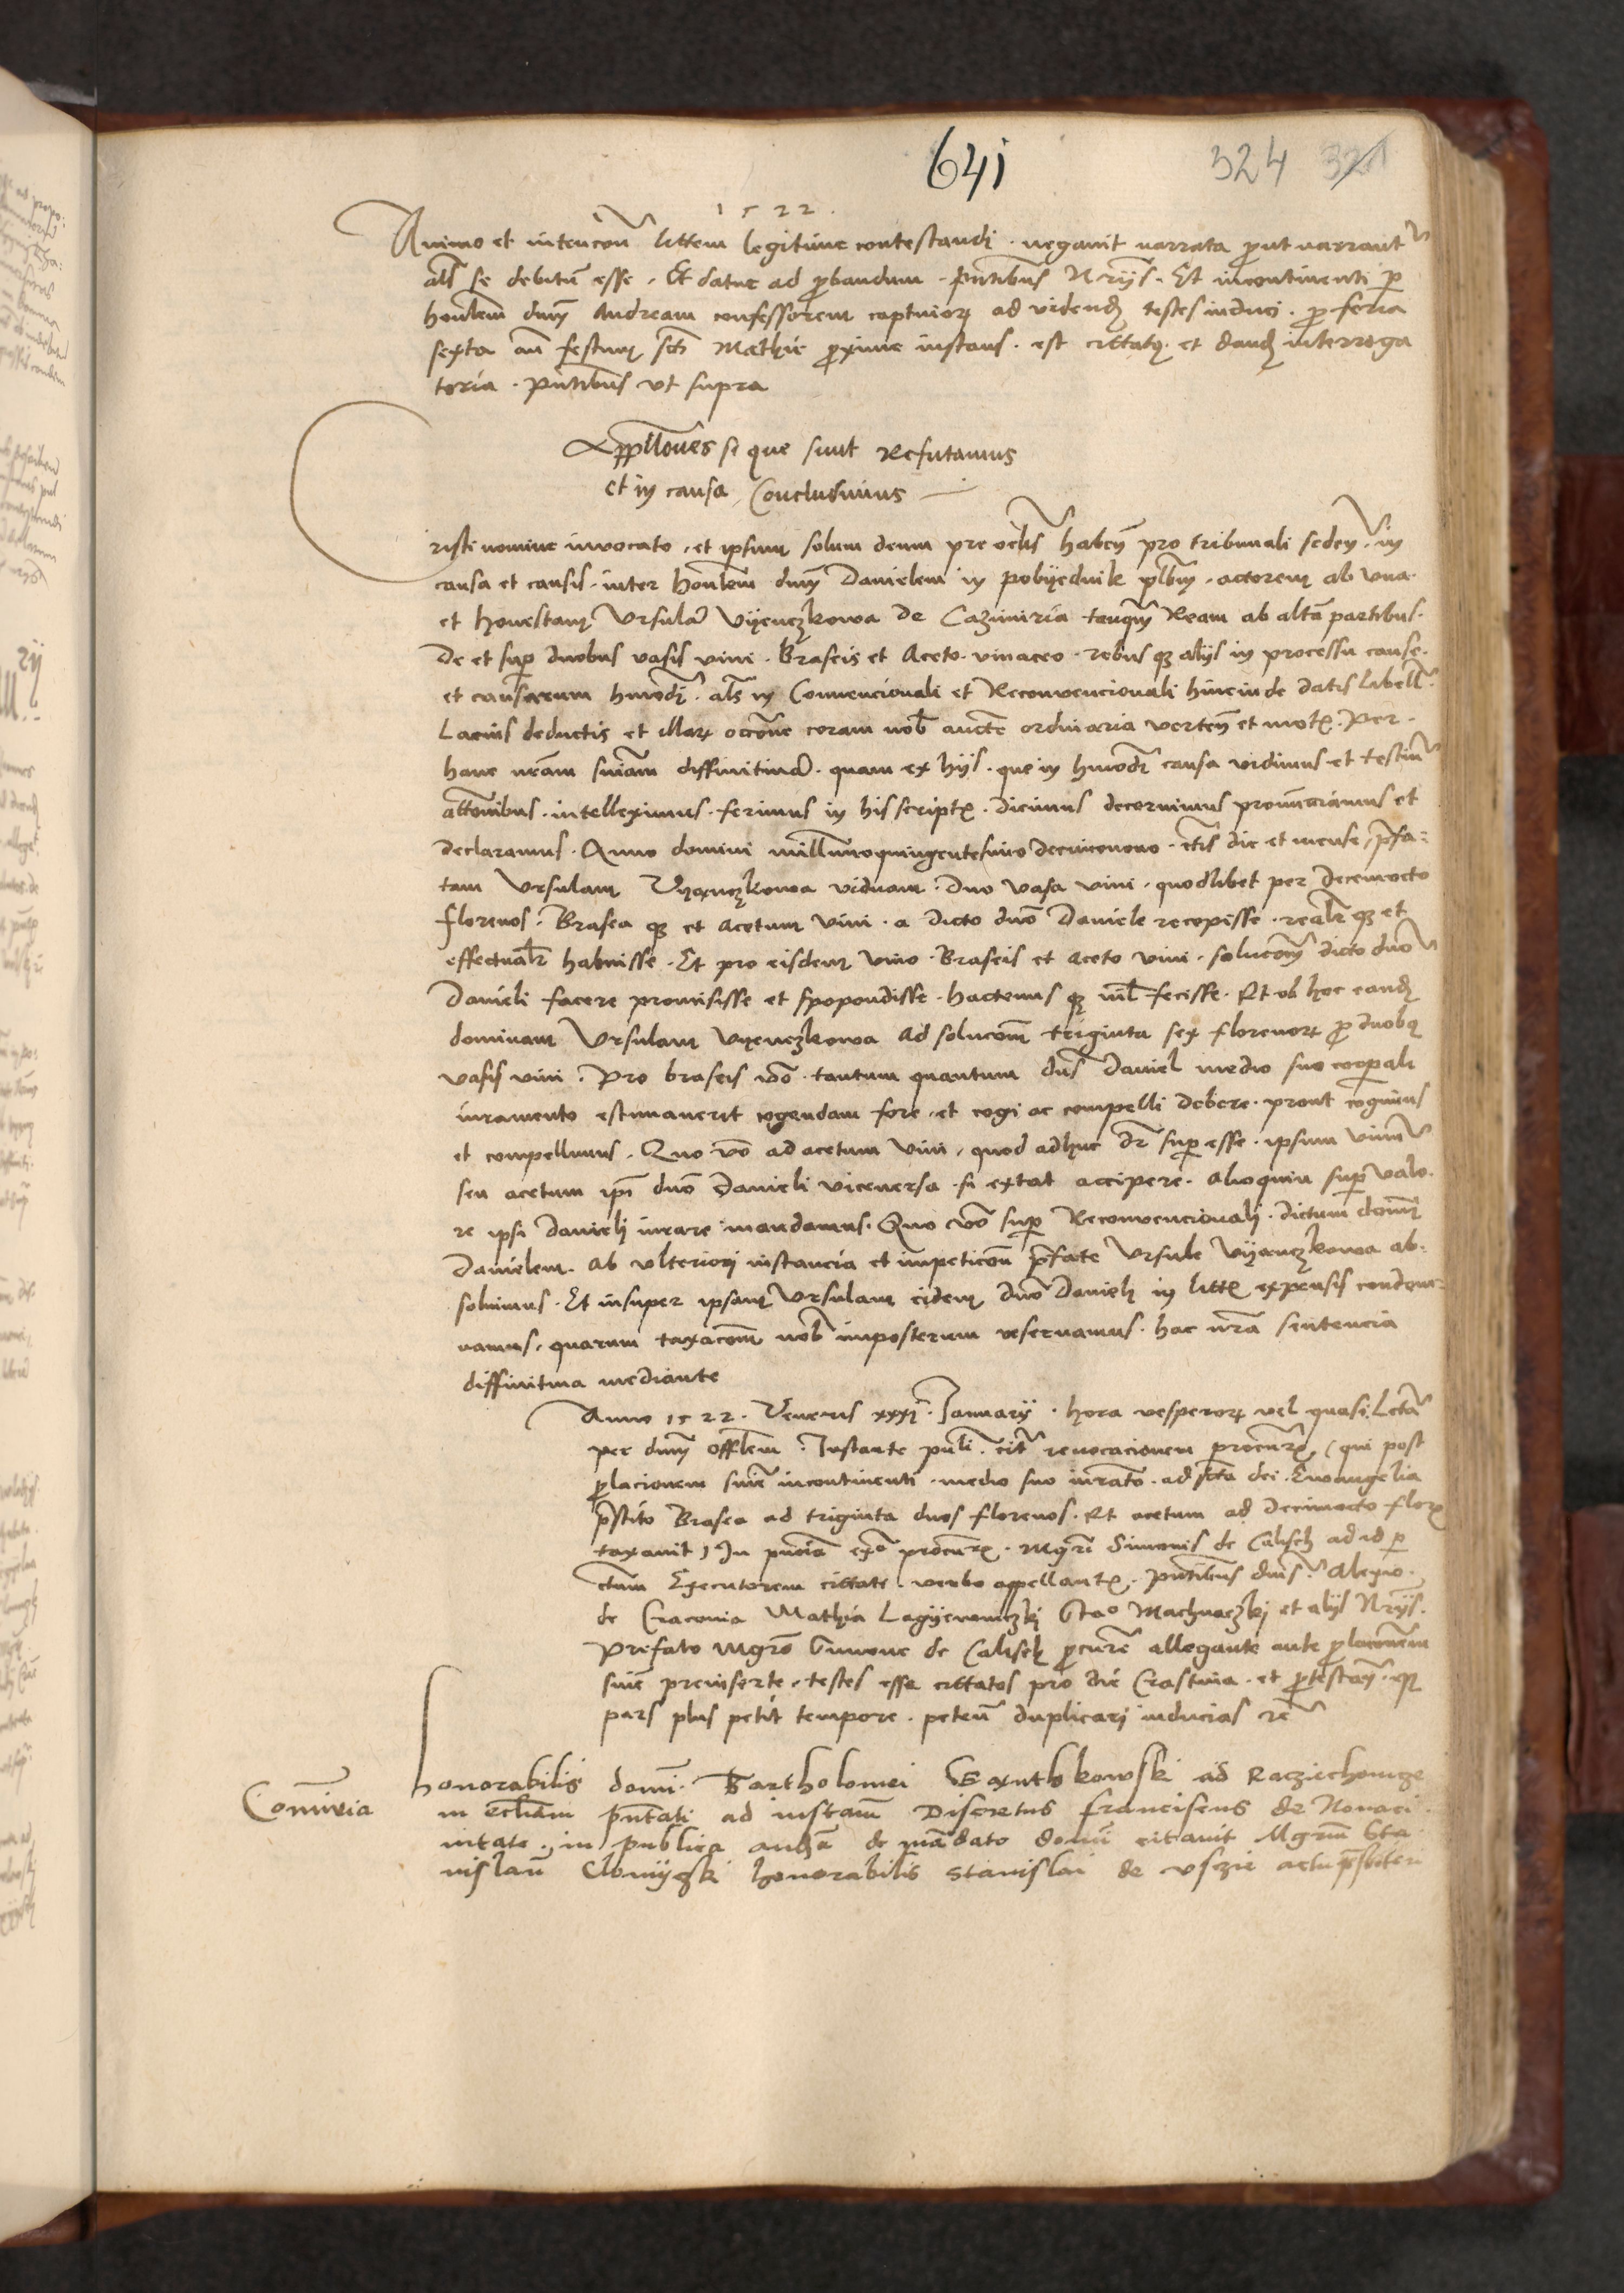 641
324 321
1522.
Animo et intencoῡ littem legitime contestandi · negauit narrata ꝓut narrantʳ
als̄ se debitū esse · Et datur ad ꝓbandum · pn̄tibus Nrijs · Et incontinenti ꝑ
honl̄em dnm̄ Andream confessorem captiuoꝝ ad videndꝫ testes induci · ꝓ feria
sexta an̄ festum sct̄i Mathie ꝓxime instans · est cittatꝰ et dandꝫ interroga
toria · pn̄tibus vt supra
Appllōnes si que sunt Refutamus
et in causa Concludimus
Cristi nomine inuocato · et ipsum solum deum pre oclīs haben̄ pro tribunali seden̄ · in
causa et causis · inter honl̄em dnm̄ Danielem in pobyednik plb̄m · actorem ab vna ·
et honestam Vrsulā Vyenczkowa de Cazimiria tanqm̄ Ream ab altā partibus ·
De et suꝑ duobus vasis vini · Braseis et Aceto · vinaceo · rebus qꝫ alijs in processu cause ·
et causarum hmōdi · als̄ in Conuencionali et Reconuencionali hincinde datis Libell̄
Lacius deductis et illaꝝ occōne coram nob̄ aucte ordinaria verten̄ et motꝭ · Per
hanc nr̄am sniām diffinitiuā · quam ex hijs · que in hmōdi causa vidimus et testiū
attōnibus · intelleximus · ferimus in his scriptꝭ · dicimus decernimus pronūciamus et
declaramus · Anno domini millmoquingentesimo decimonono · ctis die et mense, p̄fa⸗
tam Vrsulam Vyanczkowa viduam · duo vasa vini · quodlibet per decemocto
florenos · Brasea qꝫ et acetum vini · a dicto dnō Daniele recepisse · realr̄ qꝫ et
effectualr̄ habuisse · Et pro eisdem vino · Braseis et aceto vini · solucōm̄ dicto dnō
Danieli facere promisisse et spopondisse · hactenus qꝫ nil̄ fecisse · Et ob hoc eandꝫ
dominam Vrsulam Vyenczkowa ad solucōm̄ triginta sex florenoꝝ ꝓ duobꝰ
vasis vini · Pro braseis vō · tantum quantum dn̄s Daniel medio suo corꝑali
iuramento estimauerit cogendam fore · et cogi ac compelli debere · prout cogimus
et compellimus · Quo vō ad acetum vini, quod adhuc dr̄ suꝑesse · ipsum vinū
seu acetum ip̄i dnō Danieli viceuersa · si extat accipere · alioquin suꝑ valo·
re ipsi Danieli iurare mandamus · Quo vō suꝑ Reconuencionali · dictum domū
Danielem · ab vlteriori instancia et impeticoῡ p̄fate Vrsule Vyanczkowa ab⸗
soluimus · Et insuper ipsam Vrsulam eidem dnō Danieli in littꝭ expensis condem⸗
namus, quarum taxacōm̄ nob̄ imposterum reseruamus · hac nr̄a sentencia
diffinitiua mediante
Anno 1522 · Veneris xxxj · Januarij · hora vesperoꝝ vel quasi Lctā
per dnm̄ offl̄em · Instante citr̄ reuocacionem procurꝭ, (qui post
ꝓlacionem snīe incontinenti · medio suo iurāto · ad scta dei · Euangelia
p̄stito Brasea ad triginta duos florenos · Et acetum ad decimocto florꝭ
taxauit) In pn̄cia procurꝭ · Mgr̄i Simonis de Calisch ad id ꝑ
ctum Executorem cittate · verbo appellantꝭ · pn̄tibus dnīs · Alexio
de Cracouia Mathia Lagyewniczki Stao Machnaczkj et alijs Nrijs ·
Prefato mgrō Simone de Calisch ꝓcurē allegante ante ꝓlacōnem
snīe preinserte · testes esse cittatos pro die Crastina · et ꝓtestan̄ · qꝫ
pars plus petit tempore · peten̄ duplicari inducias rē
Comīnia
honorabilis domī · Bartholomei ad Racziechowycze
in eccl̄iam pn̄tati ad instām Discretus franciscus de Nouaci·
uitate · in publica audīa de mādato domī citauit Mgrm̄ Sta·
nislaū honorabilis Stanislai de vsczie actu p̄sbiteri